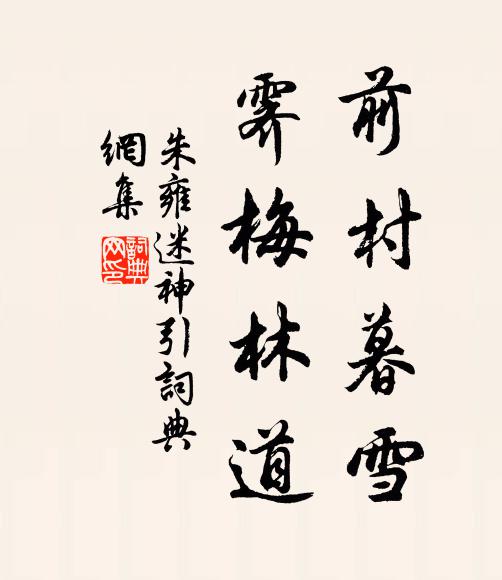 前村暮雪
霽梅林道
朱雍迷神引詞典
網集
詞典網印